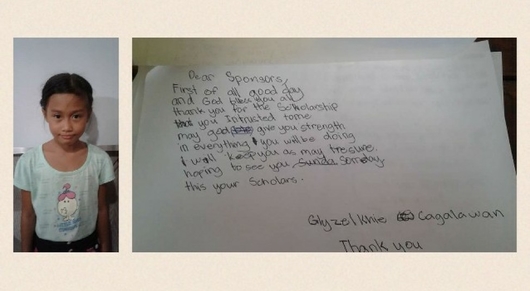 Dear Sponsors,
First of all good day
and God bless you all
thank you for the Scholarship
you Intrusted to me
may god give you strength
in everything you will be doing
I will keep you as may tresure.
hoping to see you Sunda Someday.
this your Scholars.
Glyzel Khie Cagalawan
Thank you